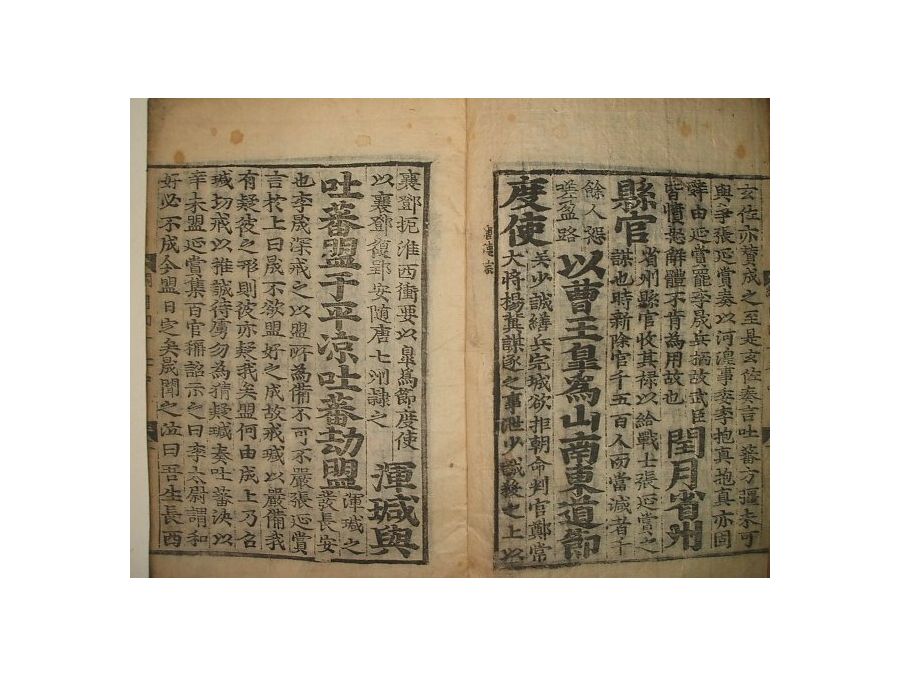 玄佐亦贊成之至是玄佐奏言吐蕃方彊未可
與爭張延賞奏以河湟事委李抱真抱真亦固
辭由延賞罷李晟兵柄故武臣
皆憤怒解體不肯為用故也
閏月省州
縣官
省州縣官收其祿以給戰士張延賞之
謀也時新除官千五百人而當減者千
餘人怨
嗟盈路
以曹王皐爲山南東道節
度使
吳少誠繕兵完城欲拒朝命判官鄭常
大將楊冀謀逐之事泄少誠殺之上以
唐德宗
襄鄧扼淮西衝要以皐為節度使
以襄鄧復郢安隨唐七州隷之
渾瑊與
吐蕃盟于平凉吐蕃劫盟
渾瑊之
發長安
也李晟深戒之以盟所為備不可不嚴張延賞
言於上曰晟不欲盟好之成故戒瑊以嚴備我
有疑彼之形則彼亦疑我矣盟何由成上乃召
瑊切戒以推誠待虜勿為猜疑瑊奏吐蕃決以
辛未盟延賞集百官稱詔示之曰李太尉謂和
好必不成今盟日定矣晟聞之泣曰吾生長西